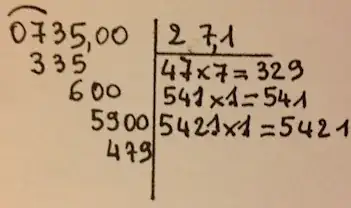 0735,00 27,1
335 47×7=329
600 541×1=541
5900 5421×1=5421
479